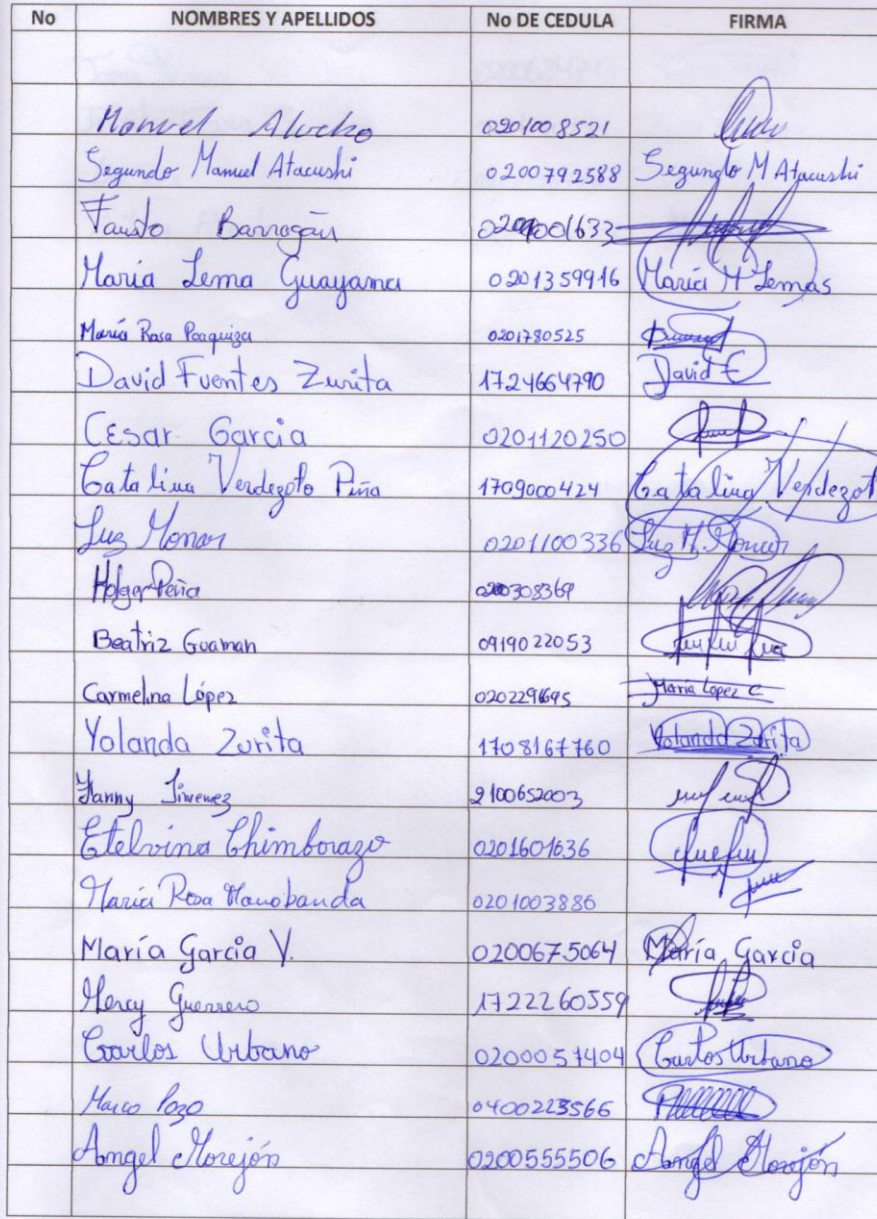 No NOMBRES Y APELLIDOS No DE CEDULA FIRMA
Manuel Alucho 0201008521
Segundo Manuel Atacushi 0200792588 Segundo M Atacushi
Fausto Barragán
María Lema Guayama 0201359916 María M Lemas
María Rosa Poaquiza 0201780525
David Fuentes Zurita 1724664790 David F
Cesar Garcia 0201120250
Catalina Verdezoto Piña 1709000424 Catalina Verdezot
Luz Monar 0201100336 Luz M. Monar
Holger Peña
Beatriz Guaman 0919022053
Carmelina López María López C
Yolanda Zurita 1708167760 Yolanda Zurita
Fanny Jimenez 2100652003
Etelvina Chimborazo 0201601636
María Rosa Manobanda 0201003886
María Garcia V. 0200675064 María Garcia
Mercy Guerrero 1722260559
Carlos Urbano 0200057404 Carlos Urbano
Marco Pozo 0400223566
Angel Morejón 0200555506 Angel Morejón